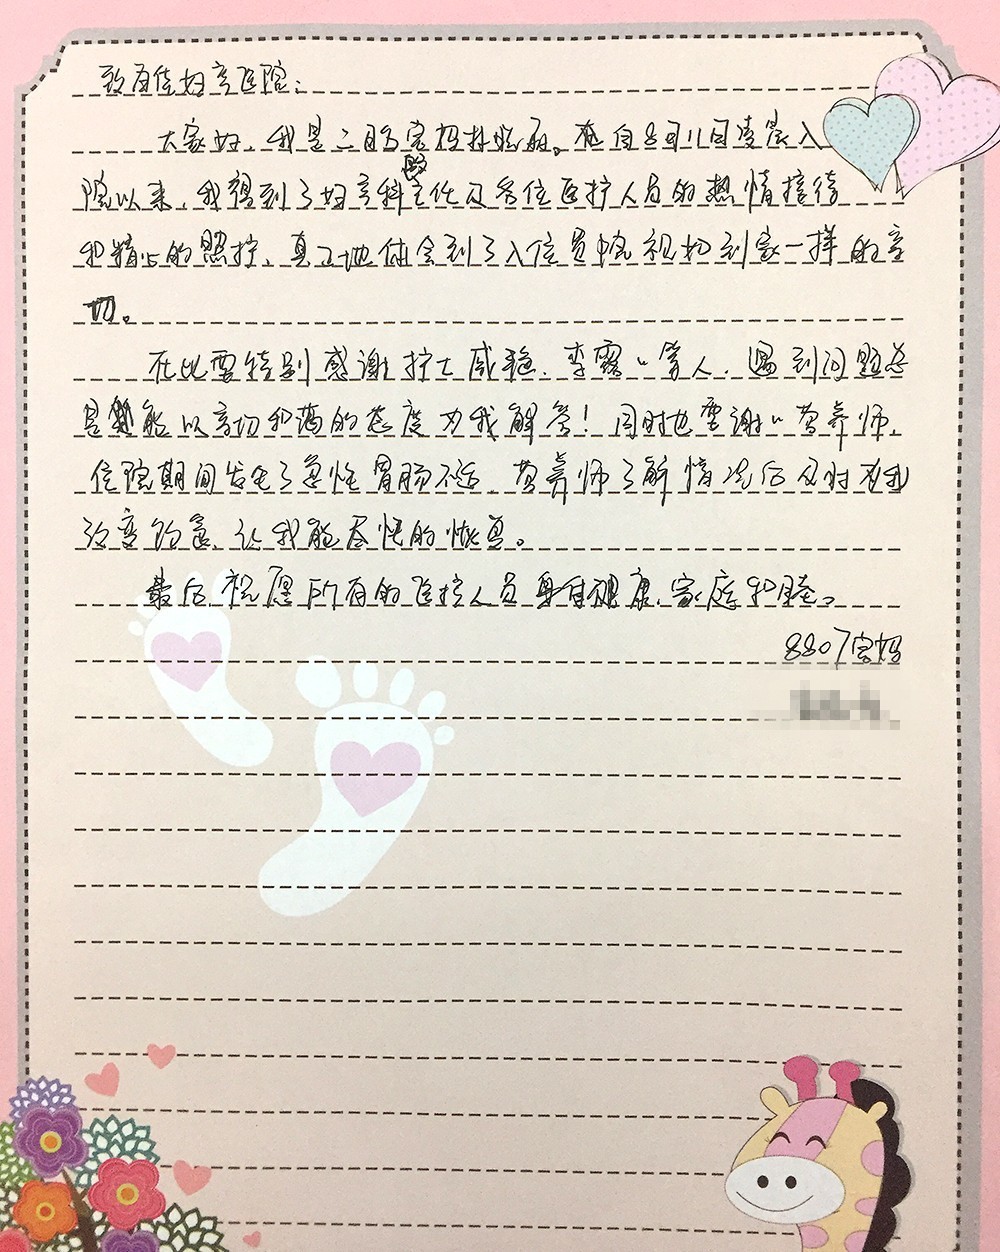 致百佳妇产医院:
大家好、我是二胎宝妈林晓丽。自8月11日凌晨入
院以来、我得到了妇产科段主任及各位医护人员的热情接待
和精心的照护、真正地体会到了入住贵院视如到家一样的亲
切。
在此要特别感谢护士戚艳、李露等人、遇到问题总
是能以亲切和蔼的态度为我解答!同时也要谢谢营养师、
住院期间发生了急性胃肠不适、营养师了解情况后及时为我
改变饮食、让我能尽快的恢复。
最后祝愿所有的医护人员身体健康、家庭和睦。
8807宝妈